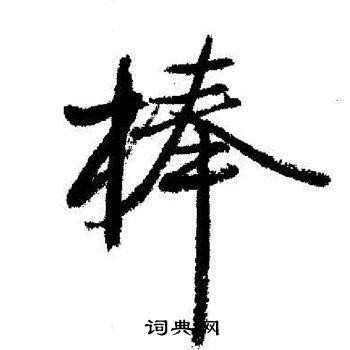 棒
词典网